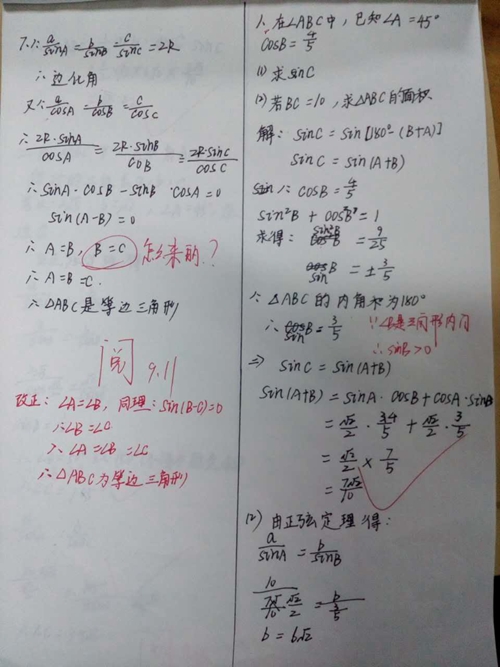 7.∵ a/sinA = b/sinB = c/sinC = 2R
∴ 边化角
又∵ a/cosA = b/cosB = c/cosC
∴ 2R·sinA/cosA = 2R·sinB/coB = 2R·sinC/cosC
∴ sinA·cosB - sinB·cosA = 0
sin(A-B) = 0
∴ A=B, B=C 怎来的?
∴ A=B=C.
∴ △ABC是等边三角形
阅 9.11
改正: ∠A=∠B, 同理: sin(B-C)=0
∴∠B=∠C
∴ ∠A=∠B=∠C
∴ △ABC为等边三角形
1. 在∠ABC中, 已知∠A=45°
cosB = 4/5
(1) 求sinC
(2) 若BC=10, 求△ABC的面积
解: sinC = sin[180°-(B+A)]
sinC = sin(A+B)
∵ cosB = 4/5
sin²B + cos²B = 1
求得: sin²B = 9/25
sinB = ±3/5
∵ △ABC的内角和为180°
∴ sinB = 3/5 ∵∠B是三角形内角
∴ sinB>0
⇒ sinC = sin(A+B)
sin(A+B) = sinA·cosB + cosA·sinB
= √2/2 · 4/5 + √2/2 · 3/5
= √2/2 × 7/5
= 7√2/10
(2) 由正弦定理得:
a/sinA = b/sinB
= b/(3/5)
b = 6√2